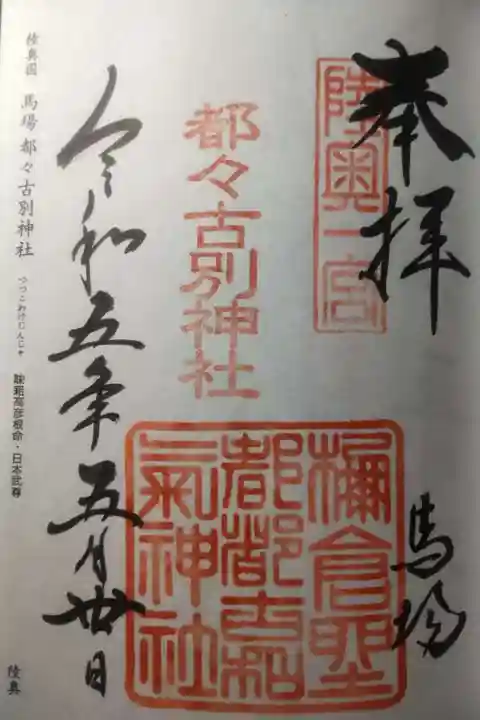 奉拝
陸奥一宮
馬場
都々古別神社
令和五年五月卅日
陸奥国 馬場 都々古別神社
つつこわけじんじゃ
味耜高彦根命・日本武尊
陸奥